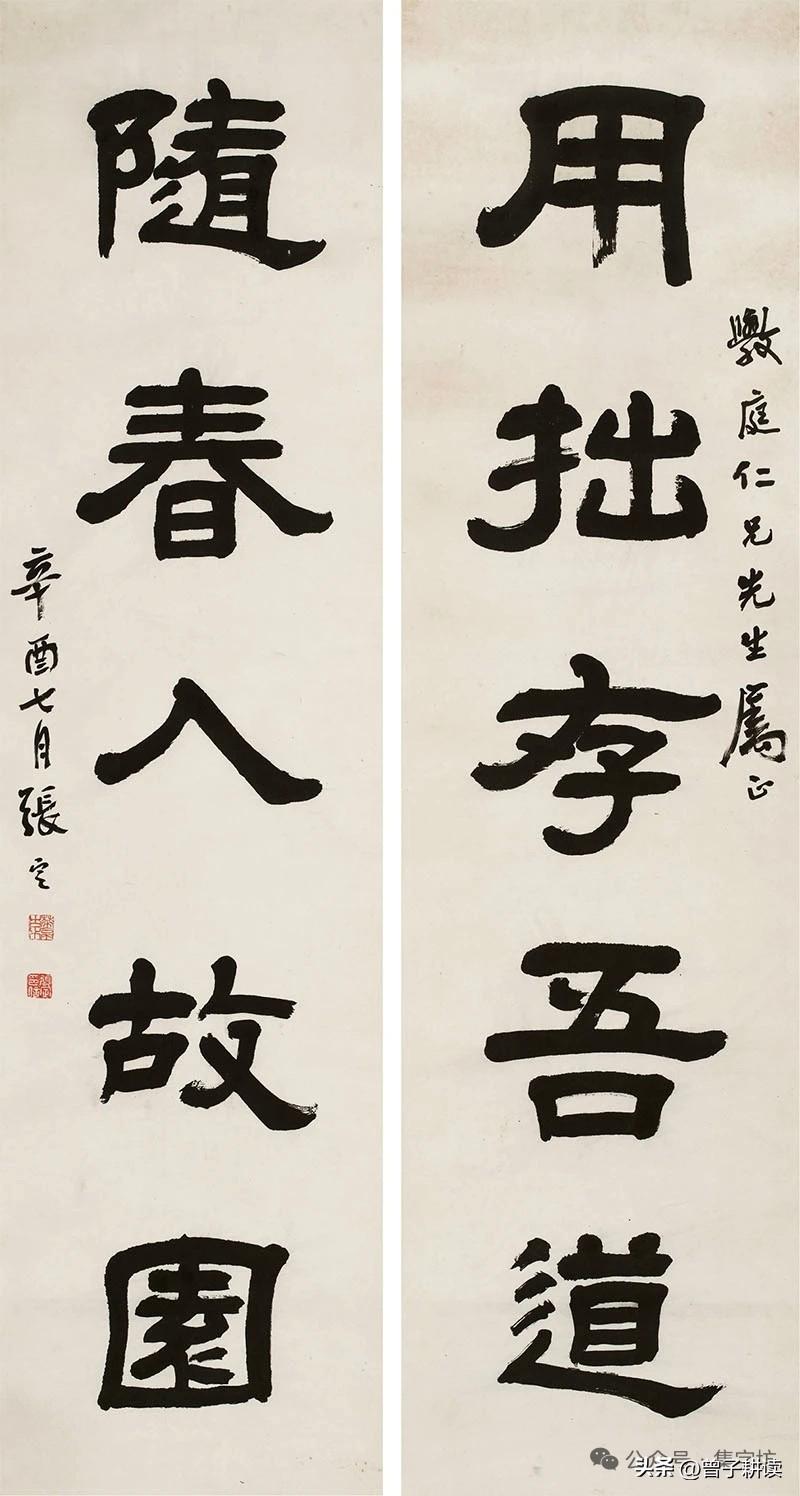 用拙存吾道
敦庭仁兄先生屬正
隨春入故園
辛酉七月張定
公众号·集字坊
头条@曾子耕读